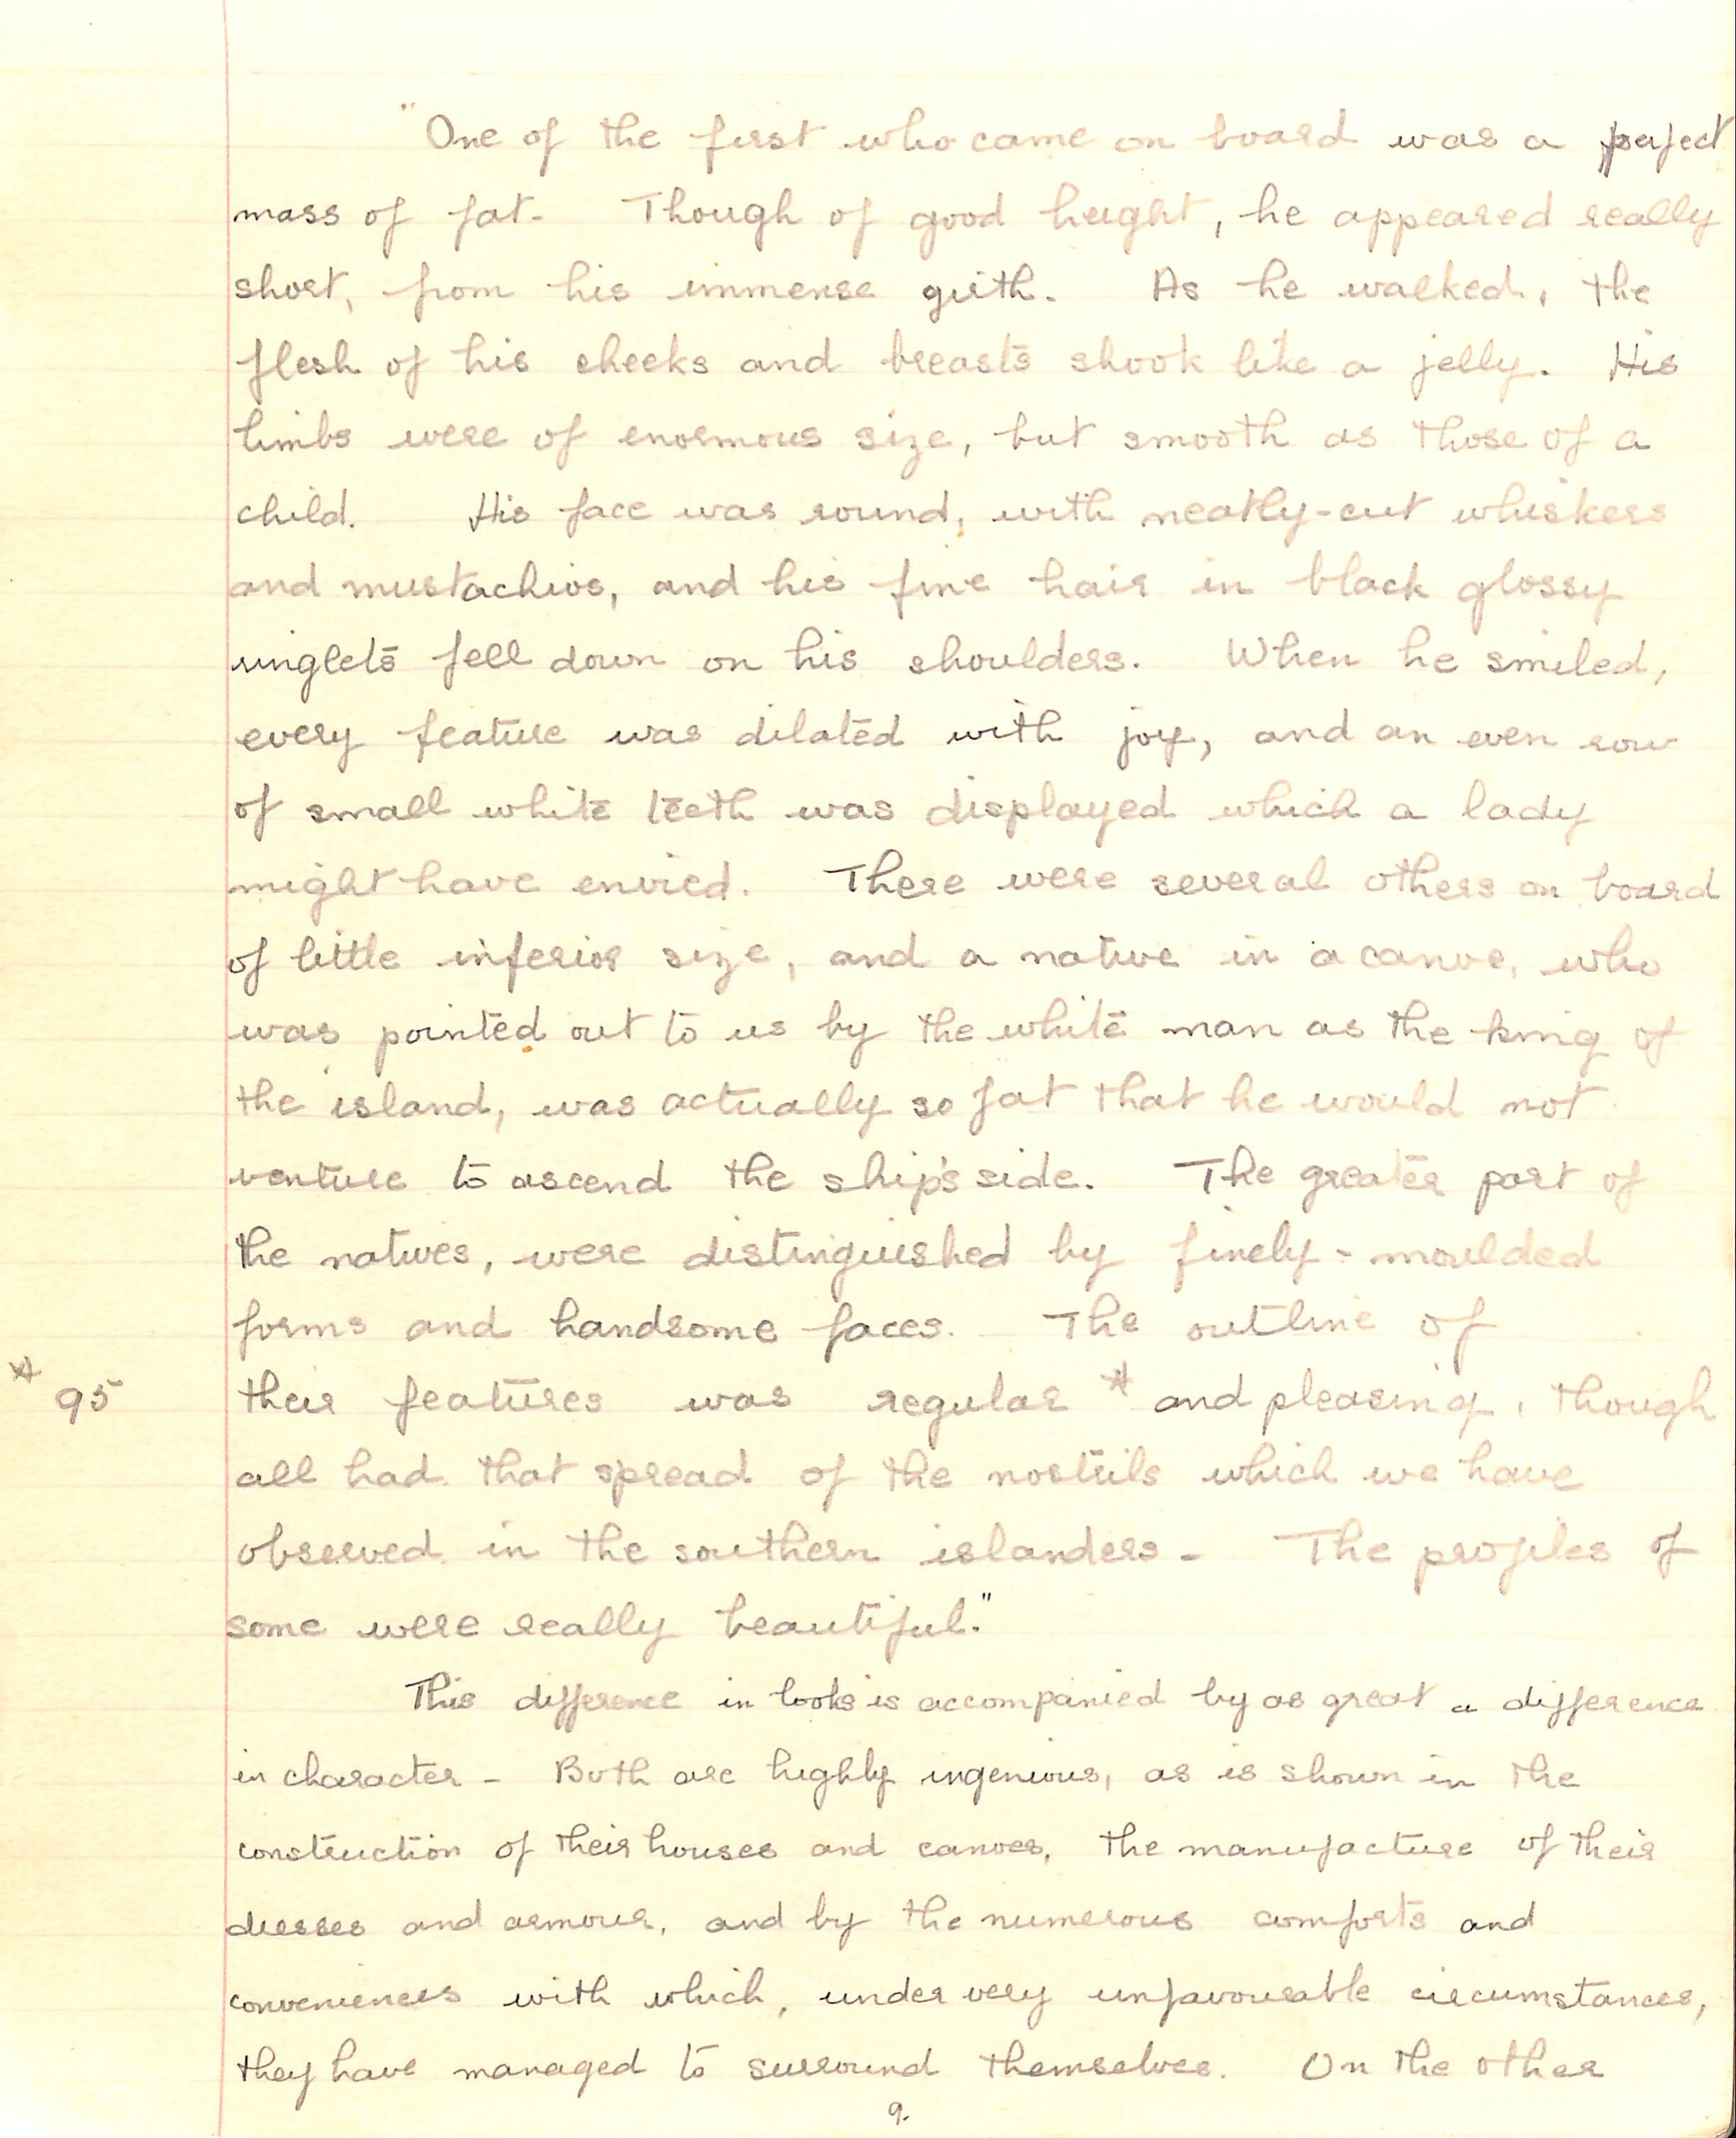 "One of the first who came on board was a perfect
mass of fat- Though of good height, he appeared really
short, from his immense girth. As he walked, the
flesh of his cheeks and breasts shook like a jelly. His
limbs were of enormous size, but smooth as those of a
child. His face was round, with neatly-cut whiskers
and mustachios, and his fine hair in black glossy
ringlets fell down on his shoulders. When he smiled,
every feature was dilated with joy, and an even row
of small white teeth was displayed which a lady
might have envied. There were several others on board
of little inferior size, and a native in a canoe, who
was pointed out to us by the white man as the king of
the island, was actually so fat that he would not
venture to ascend the ship's side. The greater part of
the natives, were distinguished by finely-moulded
forms and handsome faces. The outline of
* 95 their features was regular * and pleasing, though
all had that spread of the nostrils which we have
observed in the southern islanders - The profiles of
some were really beautiful."
This difference in looks is accompanied by as great a difference
in character - Both are highly ingenious, as is shown in the
construction of their houses and canoes, the manufacture of their
dresses and armour, and by the numerous comforts and
conveniences with which, under very unfavourable circumstances,
they have managed to surround themselves. On the other
9.